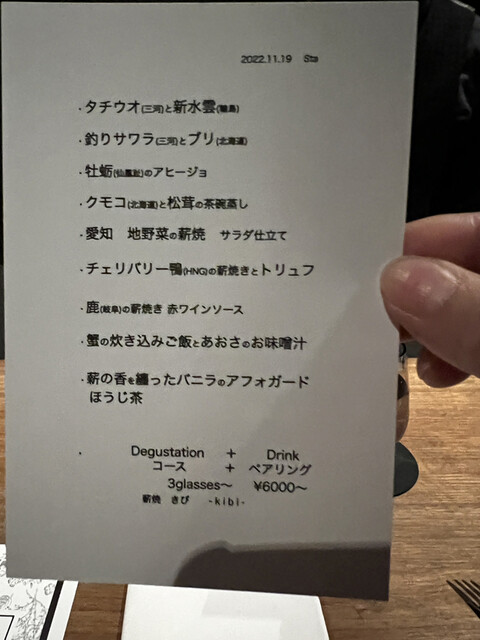 2022.11.19 Sta
・タチウオ(三河)と新水雲(輪島)
・釣りサワラ(三河)とブリ(北海道)
・牡蛎(仙鳳趾)のアヒージョ
・クモコ(北海道)と松茸の茶碗蒸し
・愛知 地野菜の薪焼 サラダ仕立て
・チェリバリー鴨(HNG)の薪焼きとトリュフ
・鹿(岐阜)の薪焼き 赤ワインソース
・蟹の炊き込みご飯とあおさのお味噌汁
・薪の香を纏ったバニラのアフォガード
ほうじ茶
・ Degustation + Drink
コース + ペアリング
3glasses〜 ¥6000〜
薪焼 きび -kibi-